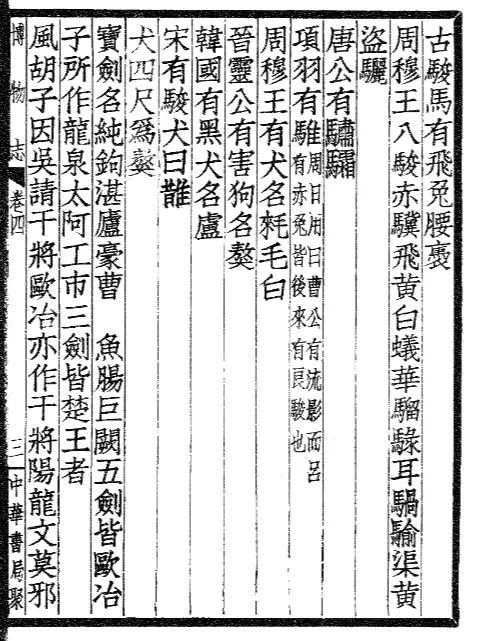 古駿馬有飛兎腰褭
周穆王八駿赤驥飛黃白蟻華騮騄耳騧騟渠黃
盜驪
唐公有驌驦
項羽有騅周日用曰曹公有流影而呂有赤兎皆後來有良駿也
周穆王有犬名䍨毛白
晉靈公有害狗名獒
韓國有黑犬名盧
宋有駿犬曰䧿
犬四尺爲獒
寶劍名純鉤湛盧豪曹　魚腸巨闕五劍皆歐冶
子所作龍泉太阿工市三劍皆楚王者
風胡子因吳請干將歐冶亦作干將陽龍文莫邪
博物志　卷四　三　中華書局聚